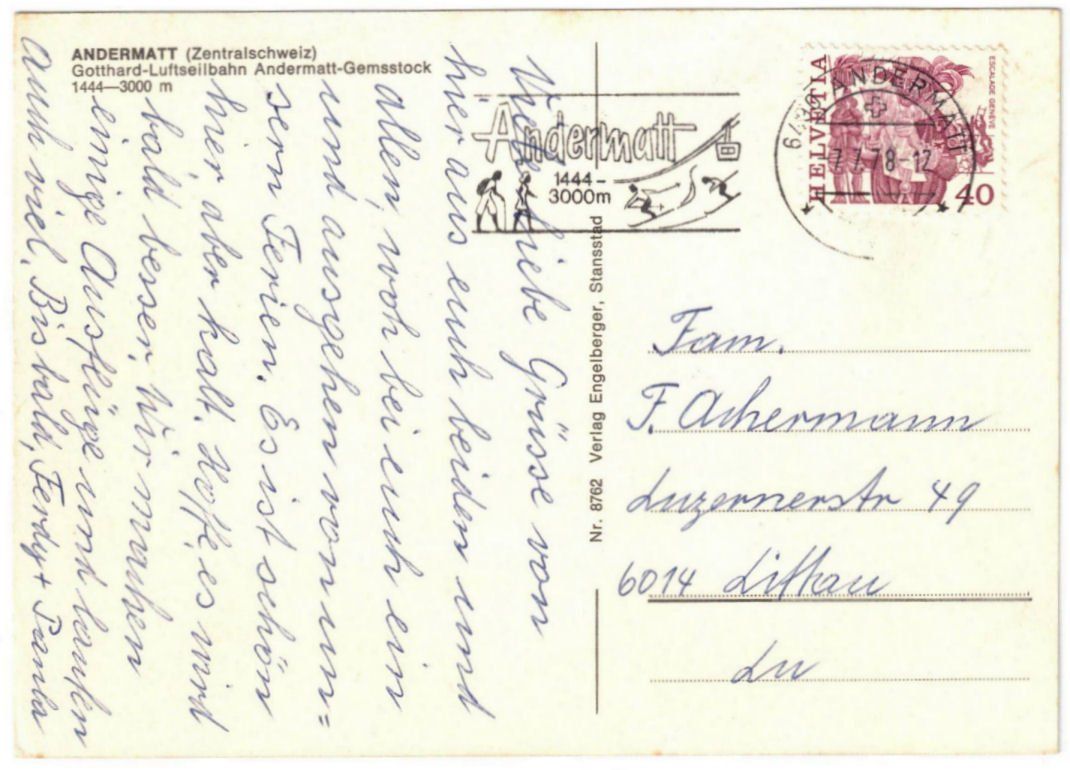 ANDERMATT (Zentralschweiz)
Gotthard-Luftseilbahn Andermatt-Gemsstock
1444—3000 m
Viele liebe Grüsse von
hier aus euch beiden und
allen, woh bei euch ein
und ausgehen von un=
sern Ferien. Es ist schön
hier aber kalt. Hoffe, es wird
bald besser, Wir machen
einige Ausflüge und laufen
auch viel, Bis bald, Ferdy +
Andermatt
1444 -
3000m
6490 ANDERMATT
7.7.78-12
HELVETIA
ESCALADE GENÈVE
40
Nr. 8762 Verlag Engelberger, Stansstad
Fam.
F. Achermann
Luzernerstr 49
6014 Littau
Lu